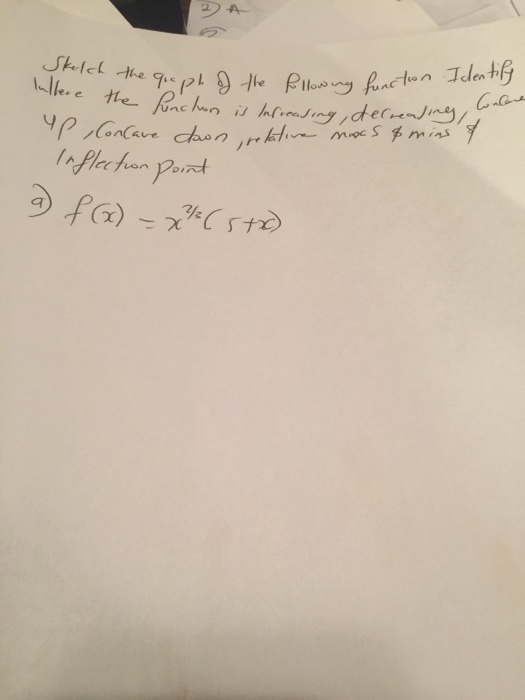 2) A
Sketch the graph of the following function Identify
Where the function is Increasing, decreasing, Concave
up, Concave down, relative maxs & mins &
Inflection point
a) f(x) = x^{2/3}(5+x)